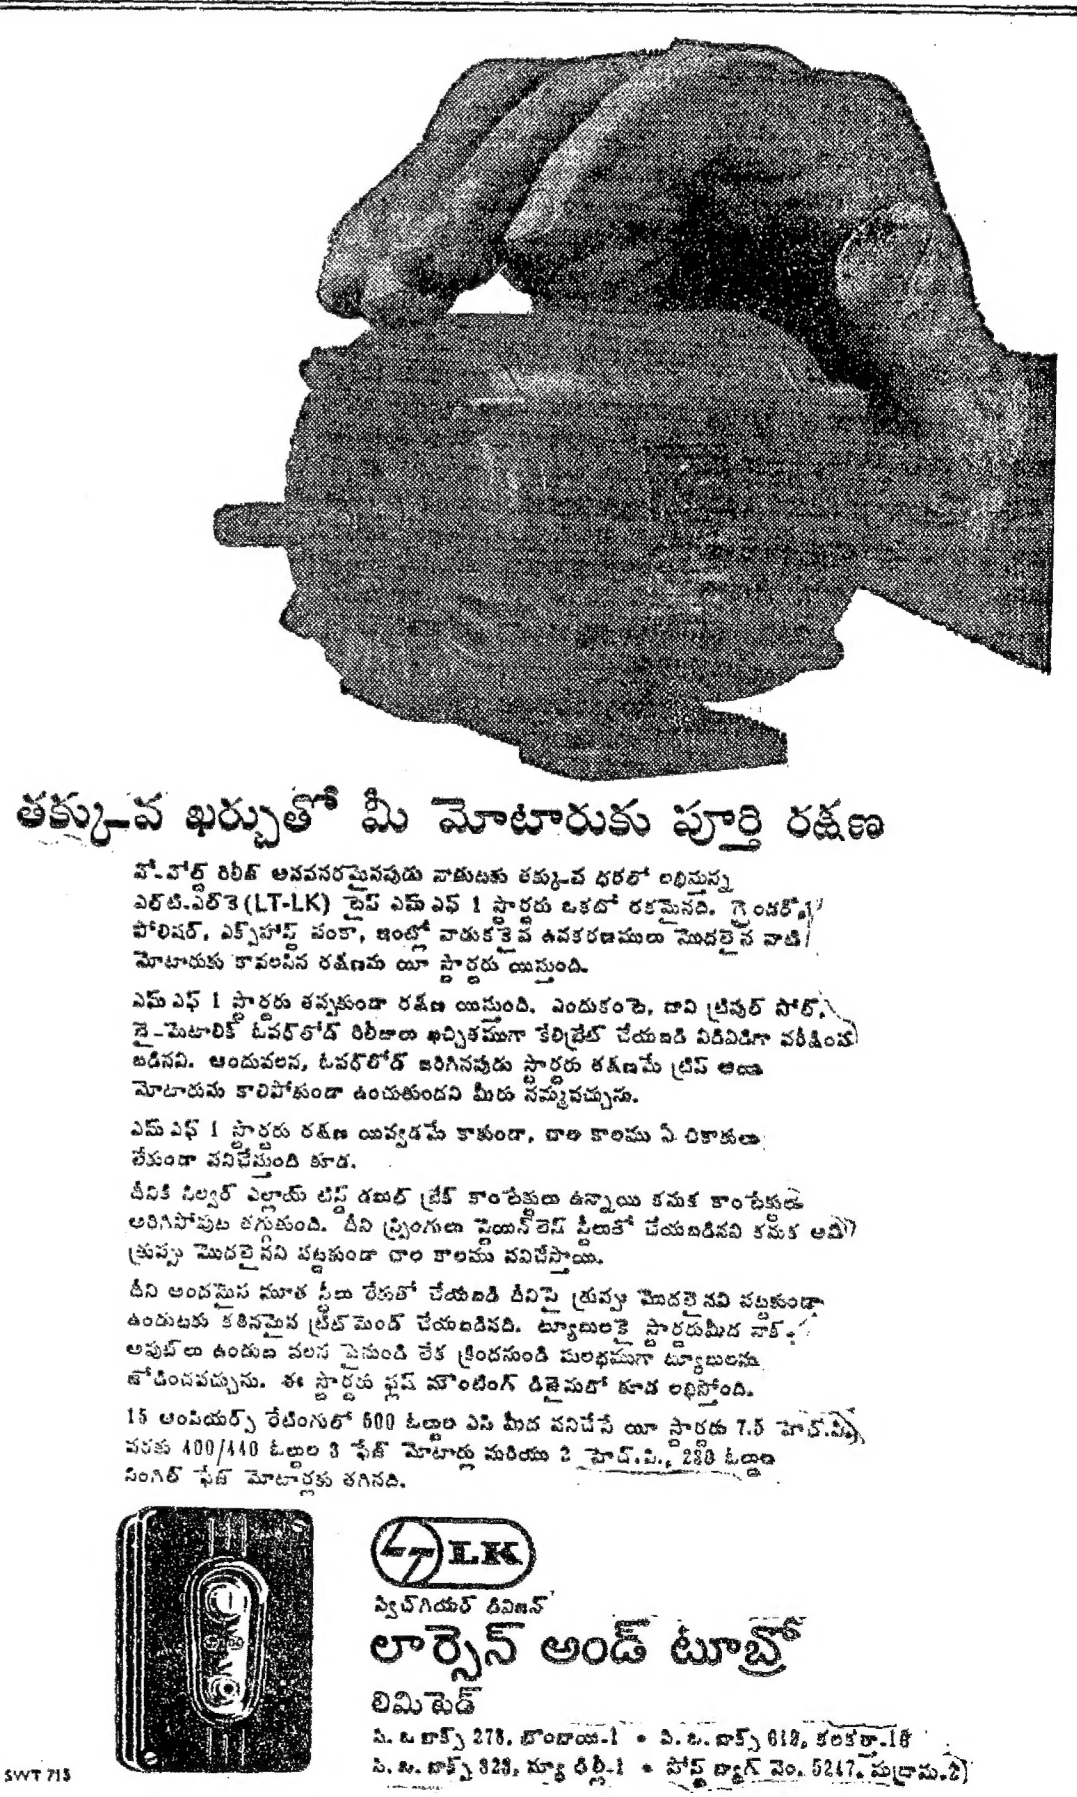 తక్కువ ఖర్చుతో మీ మోటారుకు పూర్తి రక్షణ
నో-వోల్ట్ రిలీజ్ అనవసరమైనపుడు వాడుటకు తక్కువ ధరలో లభిస్తున్న
ఎల్‌టి-ఎల్‌కె (LT-LK) టైప్ ఎమ్ ఎఫ్ 1 స్టార్టరు ఒకటో రకమైనది. గ్రైండర్,
పోలిషర్, ఎక్స్‌హాస్ట్ పంకా, ఇంట్లో వాడుకకైన ఉపకరణములు మొదలైన వాటి
మోటారుకు కావలసిన రక్షణను యీ స్టార్టరు యిస్తుంది.
ఎమ్ ఎఫ్ 1 స్టార్టరు తప్పకుండా రక్షణ యిస్తుంది. ఎందుకంటె, దాని ట్రిపుల్ పోల్,
బై-మెటాలిక్ ఓవర్‌లోడ్ రిలీజులు ఖచ్చితముగా కేలిబ్రేట్ చేయబడి విడివిడిగా పరీక్షింప
బడినవి. అందువలన, ఓవర్‌లోడ్ జరిగినపుడు స్టార్టరు తక్షణమే ట్రిప్ అయి
మోటారును కాలిపోకుండా ఉంచుతుందని మీరు నమ్మవచ్చును.
ఎమ్ ఎఫ్ 1 స్టార్టరు రక్షణ యివ్వడమే కాకుండా, చాల కాలము ఏ చికాకులు
లేకుండా పనిచేస్తుంది కూడ.
దీనికి సిల్వర్ ఎల్లాయ్ టిప్డ్ డబుల్ బ్రేక్ కాంటేక్టులు ఉన్నాయి కనుక కాంటేక్టులు
అరిగిపోవుట తగ్గుతుంది. దీని స్ప్రింగులు స్టెయిన్‌లెస్ స్టీలుతో చేయబడినవి కనుక అవి
త్రుప్పు మొదలైనవి పట్టకుండా చాల కాలము పనిచేస్తాయి.
దీని అందమైన మూత స్టీలు రేకుతో చేయబడి దీనిపై త్రుప్పు మొదలైనవి పట్టకుండా
ఉండుటకు కఠినమైన ట్రీట్‌మెండ్ చేయబడినది. ట్యూబులకై స్టార్టరుమీద నాక్-
అవుట్‌లు ఉండుట వలన పైనుండి లేక క్రిందనుండి సులభముగా ట్యూబులను
జోడించవచ్చును. ఈ స్టార్టరు ఫ్లష్ మౌంటింగ్ డిజైనులో కూడ లభిస్తోంది.
15 ఆంపియర్స్ రేటింగులో 500 ఓల్టుల ఎసి మీద పనిచేసే యీ స్టార్టరు 7.5 హెచ్.పి.
వరకు 400/440 ఓల్టుల 3 ఫేజ్ మోటార్లు మరియు 2 హెచ్.పి., 230 ఓల్టుల
సింగిల్ ఫేజ్ మోటార్లకు తగినది.
LT LK
స్విచ్‌గియర్ డివిజన్
లార్సెన్ అండ్ టూబ్రో
లిమిటెడ్
పి. ఒ. బాక్స్ 278, బొంబాయి-1 • పి. ఒ. బాక్స్ 619, కలకత్తా-16
పి. ఒ. బాక్స్ 323, న్యూ ఢిల్లీ-1 • పోస్ట్ బ్యాగ్ నెం. 5247, మద్రాసు-2
SWT 715